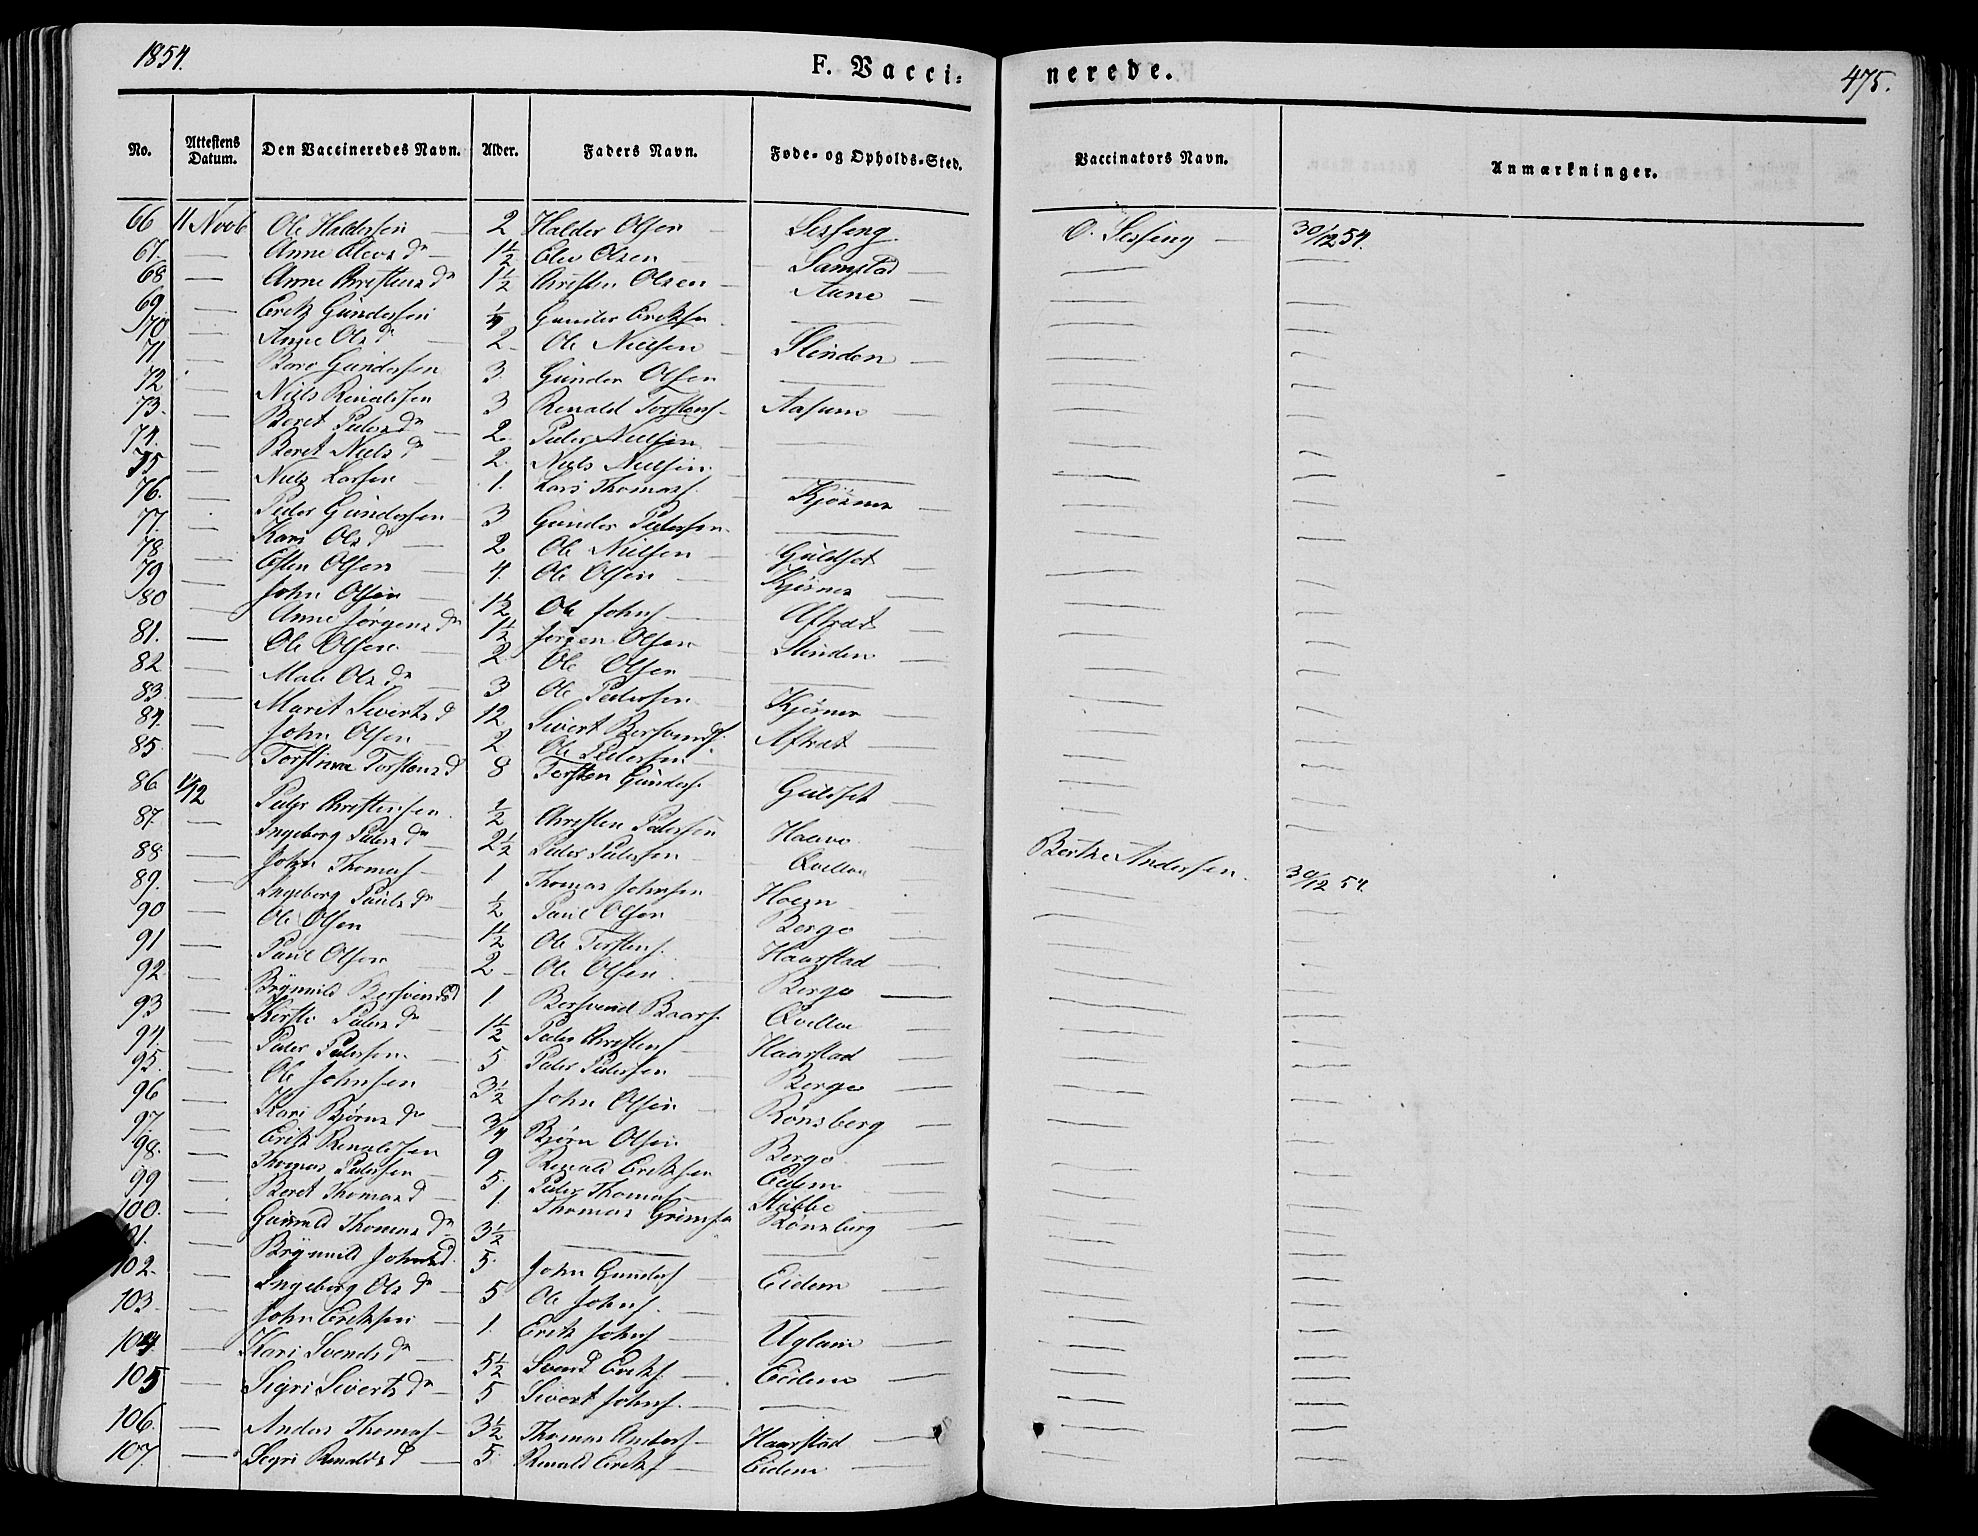 1854.
F. Vacci=
nerede.
475.
No. Attestens Datum. Den Vaccineredes Navn. Alder. Faders Navn. Føde- og Opholds-Sted. Vaccinators Navn. Anmærkninger.
66 11 Novb Ole Haldersen — 2 Halder Olsen — Sesseng. O. Sesseng — 30/12 54.
67. — Anne Elevsdr — 1½ Elev Olsen — Samstad — —
68 — Anne Christensdr 1½ Christen Olsen — Aune — —
69 — Erik Gundersen ¼ Gunder Eriksen — — —
70 — Anne Olsdr — 2 Ole Nielsen — Slinden — — —
71 — Gundersen 3. Gunder Olsen — — —
72 — Niels Renaldsen 3 Renald Torstens. Aasum — — —
73. — Beret Pedersdr — 2. Peder Nielsen — — —
74. — Beret Nielsdr — 2. Niels Nielsen. — — —
75 — Niels Larsen — 1. Lars Thomass. Kjøsnes — — —
76. — Peder Gundersen 3 Gunder Pedersen.
77. — Kari Olsdr — 2 Ole Nielsen — Guldset — — —
78. — Esten Olsen — 4. Ole Olsen — Kjøsnes — — —
79 — John Olsen — 1½ Ole Johns. — Aftret — — —
80 — Anne Jørgensdr 1½ Jørgen Olsen — Slinden — — —
81. — Ole Olsen — 2 Ole Olsen — — —
82 — Mali Olsdr — 3 Ole Pedersen — Kjøsnes — — —
83. — Marit Sivertsd 12 Sivert Bersvends. Aftret — — —
84. — John Olsen — 2 Ole Pedersen — — —
85. — Torstensd 8 Torsten Gunders. Guldset — — —
86 1/12 Peder Christensen. ½ Christen Pedersen
87. — Ingeborg Pedersdr — 2½ Peder Pedersen — Berthe Andersen. 30/12 54.
88. — John Thomas. — 1 Thomas Johnsen Qvelloe — —
89. — Ingeborg Paulsdr ½ Paul Olsen — — —
90 — Ole Olsen — 1½ Ole Torstens. Berge — —
91 — Paul Olsen — 2 — Ole Olsen Haarstad — —
92. — Brynnild Bersvendsd 1. Bersvend Baars. Berge — — —
93 — Kirsti Pedersdr — 1½ Peder Christens. Qvelloe — — —
94. — Peder Pedersen. — 5 Peder Pedersen — Haarstad — — —
95. — Ole Johnsen — 3½ John Olsen — Berge — — —
96 — Kari Bjørnsdr — ¾ Bjørn Olsen Rønsberg — — —
97. — Erik Renaldsen 9 Renald Eriksen Berge — — —
98. — Thomas Pedersen — 5. Peder Thomas. — Eidem — — —
99 — Beret Thomasd — 1. Thomas Stubbe — — —
100. — Gunild Thomasdr — 3½ — Rønsberg — — —
101. — Brynnild Johnsd. 5. John Gunders. — — —
102. — Ingeborg Olsdr — 5 Ole Johns. Eidem — — —
103. — John Eriksen — 1. Erik Johns. — — —
104 — Kari Svendsdr — 5½ Svend Eriks. Uglem — — —
105 — Sigri Sivertsdr — 5 Sivert Johns. Eidem — — —
106. — Anders Thomas. — 3½ Thomas Anders. — Haarstad — — —
107. — Sigri Renaldsd — 5 Renald Eriks. — Eidem — — —